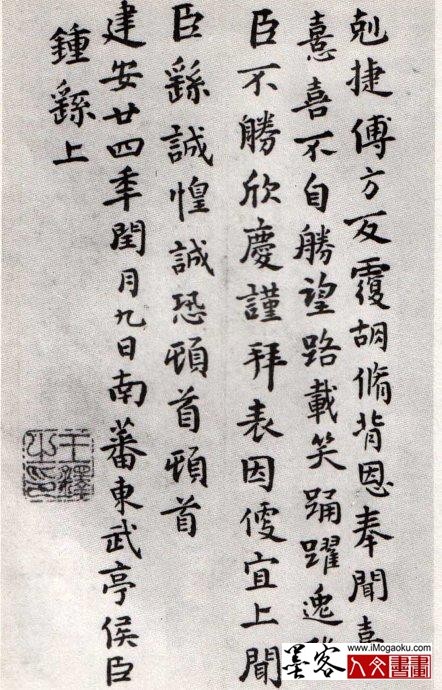 剋捷傅方反覆胡脩背恩奉聞嘉
憙喜不自勝望路載笑踊躍逸
臣不勝欣慶謹拜表因便宜上聞
臣繇誠惶誠恐頓首頓首
建安廿四年閏月九日南蕃東武亭侯臣
鍾繇上
王鐸之印
www.iMogaoku.com
墨客
人文書畫